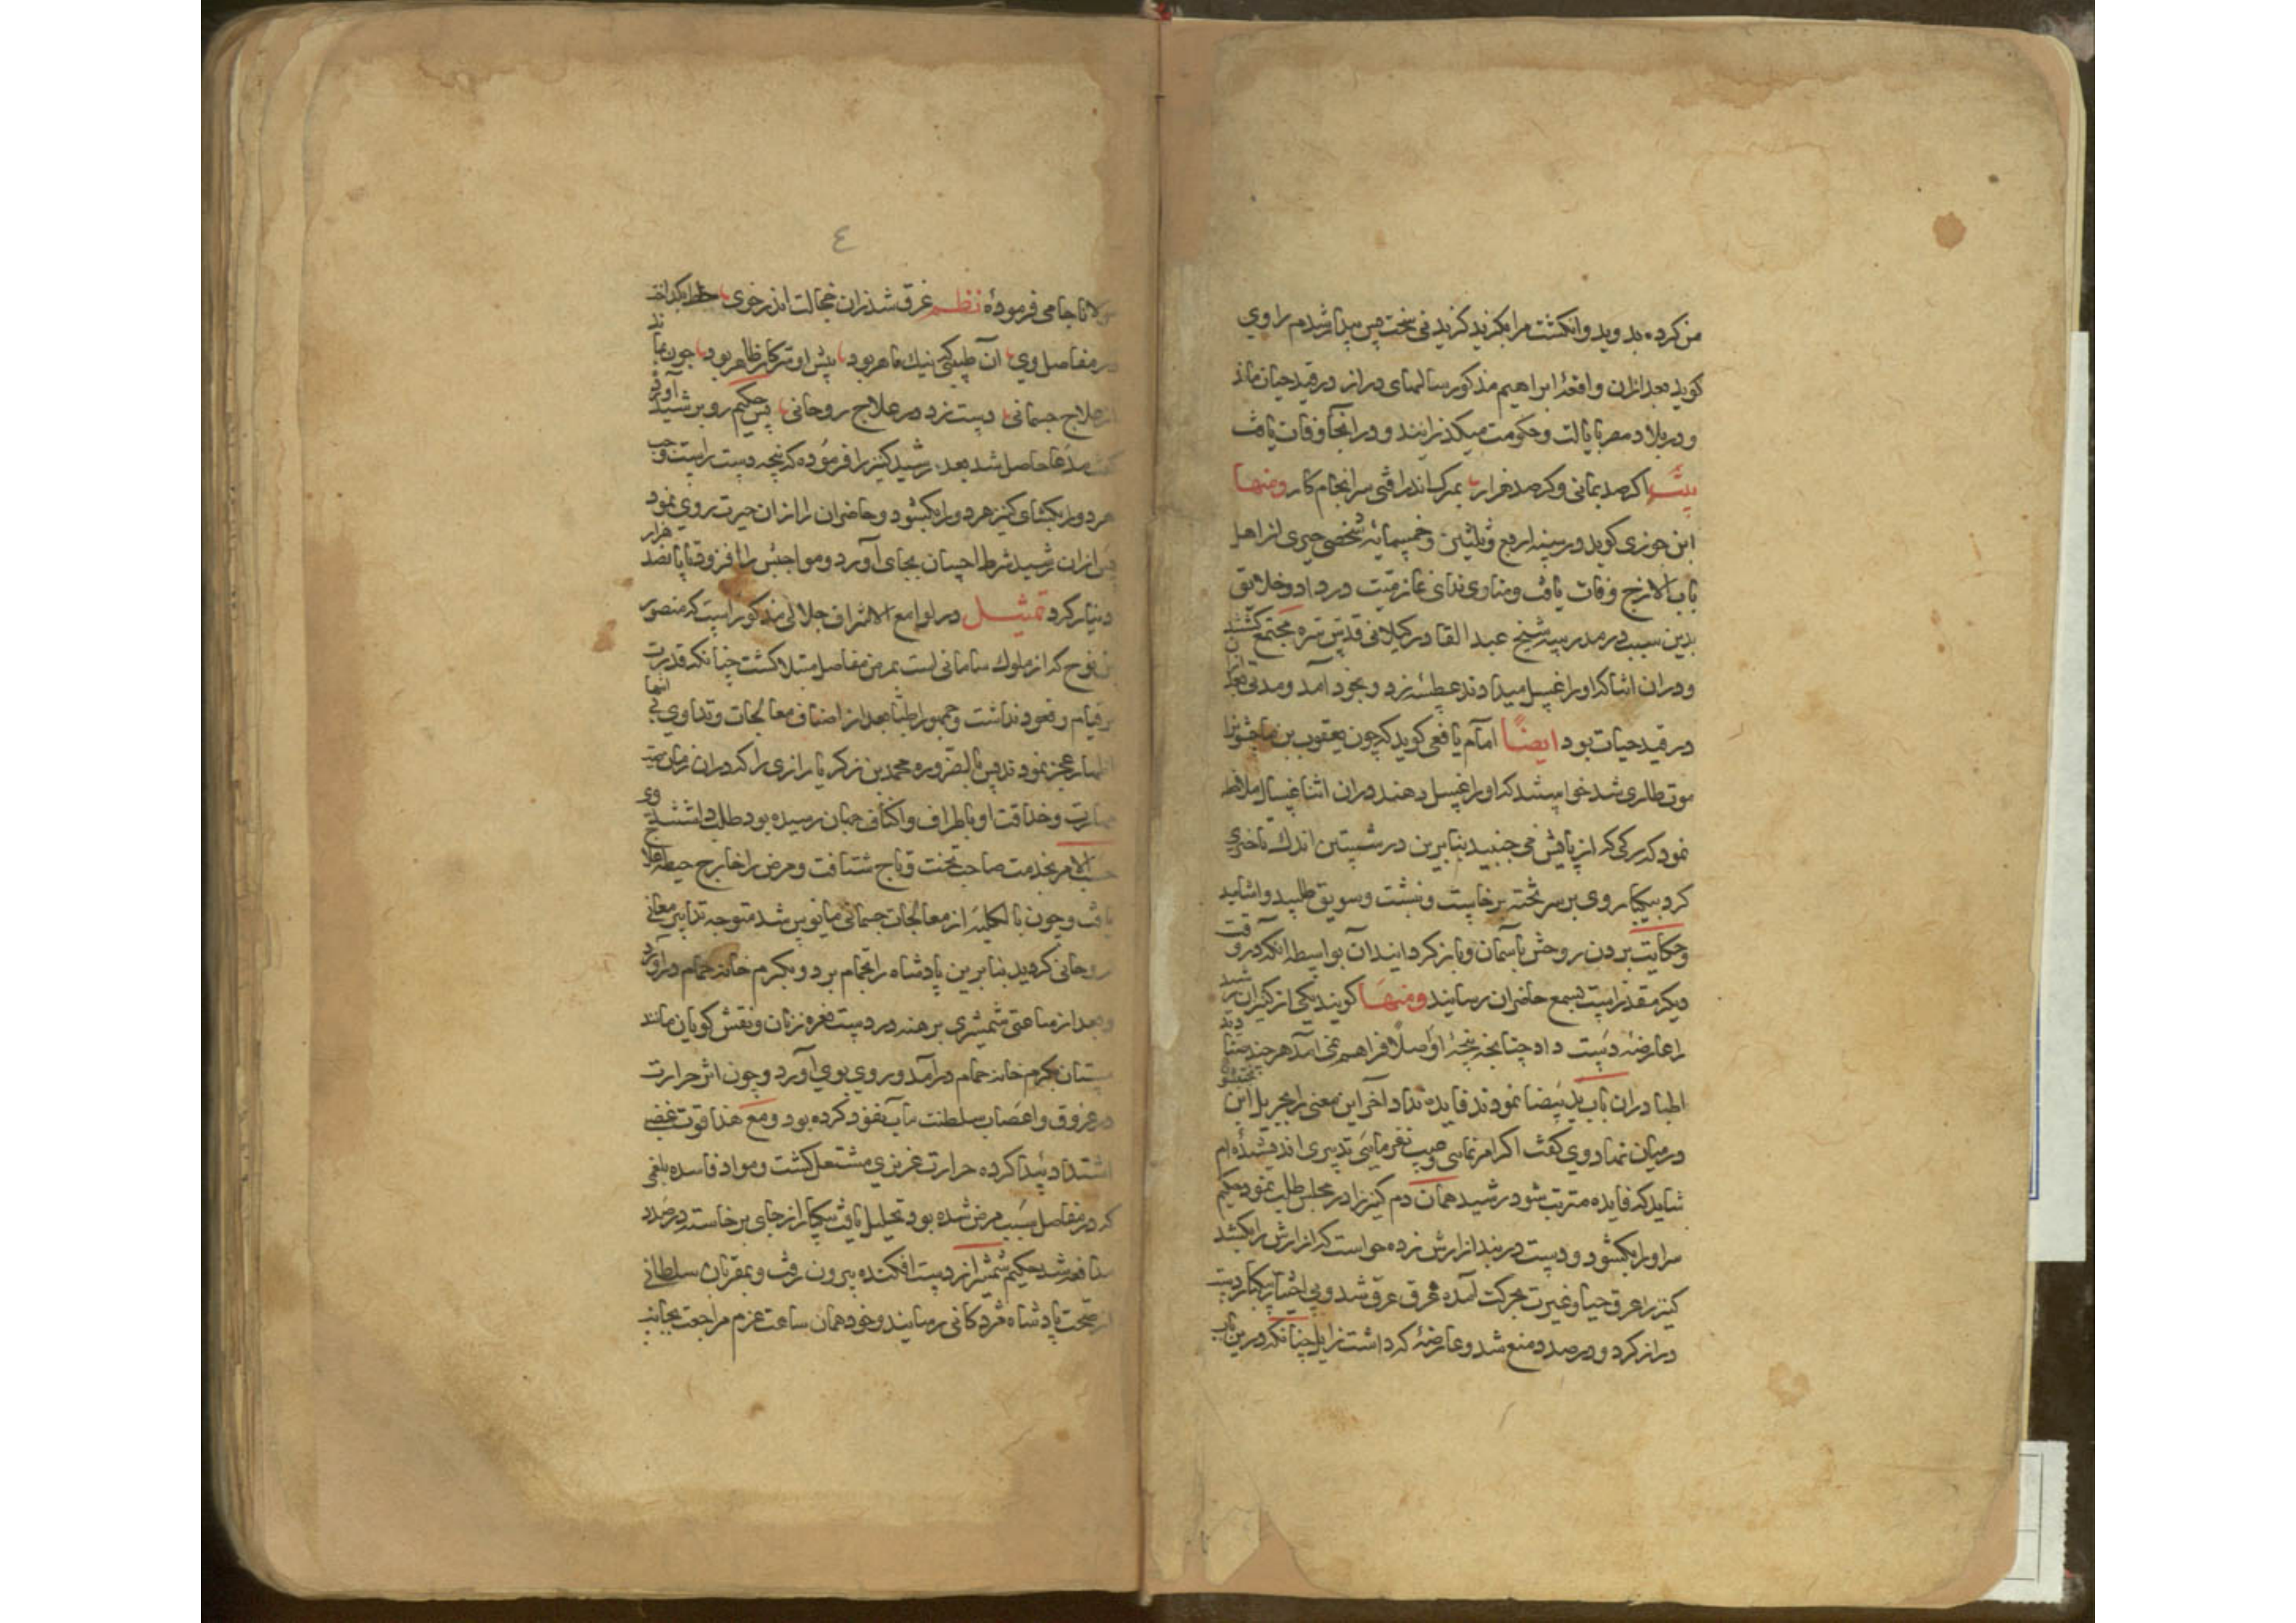 من کرده بدوید و انکشت مرا بکزید کزیدنی سخت پس بیدار شدم راوی
کوید بعد ازان واقعهٔ ابراهیم مذکور سالهای دراز در قید حیات ماند
و در بلاد مصر بایالت و حکومت میکذرانید و در انجا وفات یافت
بیت اکر صد بمانی و کر صد هزار بمرک اندر افتی سرانجام کار ومنها
ابن جوزی کوید در سنه اربع و ثلثین و خمسمایه شخصی از اهل
باب الازج وفات یافت و منادی ندای نماز میت در داد و خلایق
بدین سبب در مدرسه شیخ عبد القادر کیلانی قدس سره مجتمع کشتند
و در ان اثنا که او را غسل میدادند عطسه زد و بخود آمد و مدتی
در قید حیات بود ایضًا امام یافعی کوید که چون یعقوب بن ماجشون را
موت طاری شد خواستند که او را غسل دهند در ان اثنا غسال ملاحظه
نمود که رکی که از پایش می جنبید بنابرین در شستن اندک تاخیری
کرد بیکبار وی بر سر تخته برخاست و نشست و سویق طلبید و اشامید
وحکایت بردن روحش باسمان و باز کردانیدن آن بواسطه انکه در وقت
دیکر مقدر است بسمع حاضران رسانید ومنها کویند یکی از کنیزان رشید
را عارضهٔ دست داد چنانچه پنجهٔ او اصلًا فراهم نمی آمد هر چند
اطبا دران باب ید بیضا نمودند فایده نداد آخر این معنی را بجبریل ابن بختیشوع
در میان نهاد وی کفت اکر امر نمایی و عیب نفرمایی تدبیری اندیشیده ام
شاید که فایده مترتب شود رشید همان دم کنیز را در مجلس طلب نمود حکیم
سر او را بکشود و دست در بند ازارش زده خواست که ازارش را بکشد
کنیز را عرق حیا و غیرت بحرکت آمده غرق عرق شد و بی اختیار بیکبار دست
دراز کرد و در صدد منع شد و عارضهٔ که داشت زایل چنانکه درین باب
٤
مولانا جامی فرموده نظم غرق شد زان خجالت اندر خوی
در مفاصل وی آن طبیبی که نیک ماهر بود پیش او سر کار ظاهر بود چون بماند
از علاج جسمانی دست زد در علاج روحانی پس حکیم رو بر شید آورد
کفت مدعا حاصل شد بعد رشید کنیز را فرموده که پنجه دست راست و چپ
هر دو را بکشای کنیز هر دو را بکشود و حاضران را ازان حیرت روی نمود
پس ازان رشید شرط احسان بجای آورد و مواجبش را افزود تا پانصد هزار
دینار کرد تمثیل در لوامع الاشراق جلالی مذکور است که منصور
بن نوح که از ملوک سامانی است بمرض مفاصل مبتلا کشت چنانکه قدرت
بر قیام و قعود نداشت و جمهور اطبا بعد از اصناف معالجات و تداوی بی انتها
اظهار عجز نمودند پس بالضروره محمد بن زکریا رازی را که دران زمان صیت
مهارت و حذاقت او باطراف و اکناف جهان رسیده بود طلب داشتند وی
حسب الامر بخدمت صاحب تخت و تاج شتافت و مرض را خارج حیطه علاج
یافت و چون بالکلیه از معالجات جسمانی مایوس شد متوجه تدابیر معانی
روحانی کردید بنابرین پادشاه را بحمام برد و بکرم خانه حمام در آورد
و بعد از ساعتی شمشیری برهنه در دست نعره زنان و نقش کویان مانند
مستان بکرم خانه حمام در آمد و روی بوی آورد و چون اثر حرارت
در عروق و اعصاب سلطنت مآب نفوذ کرده بود و مع هذا قوت غضبی
اشتداد پیدا کرده حرارت غریزی مشتعل کشت و مواد فاسده بلغمی
که در مفاصل سبب مرض شده بود تحلیل یافت بیکبار از جای برخاسته در صدد
مدافعه شد حکیم شمشیر از دست افکنده بیرون رفت و بمقربان سلطانی
از صحت پادشاه مژدکانی رسانید و خود همان ساعت عزم مراجعت بجانب